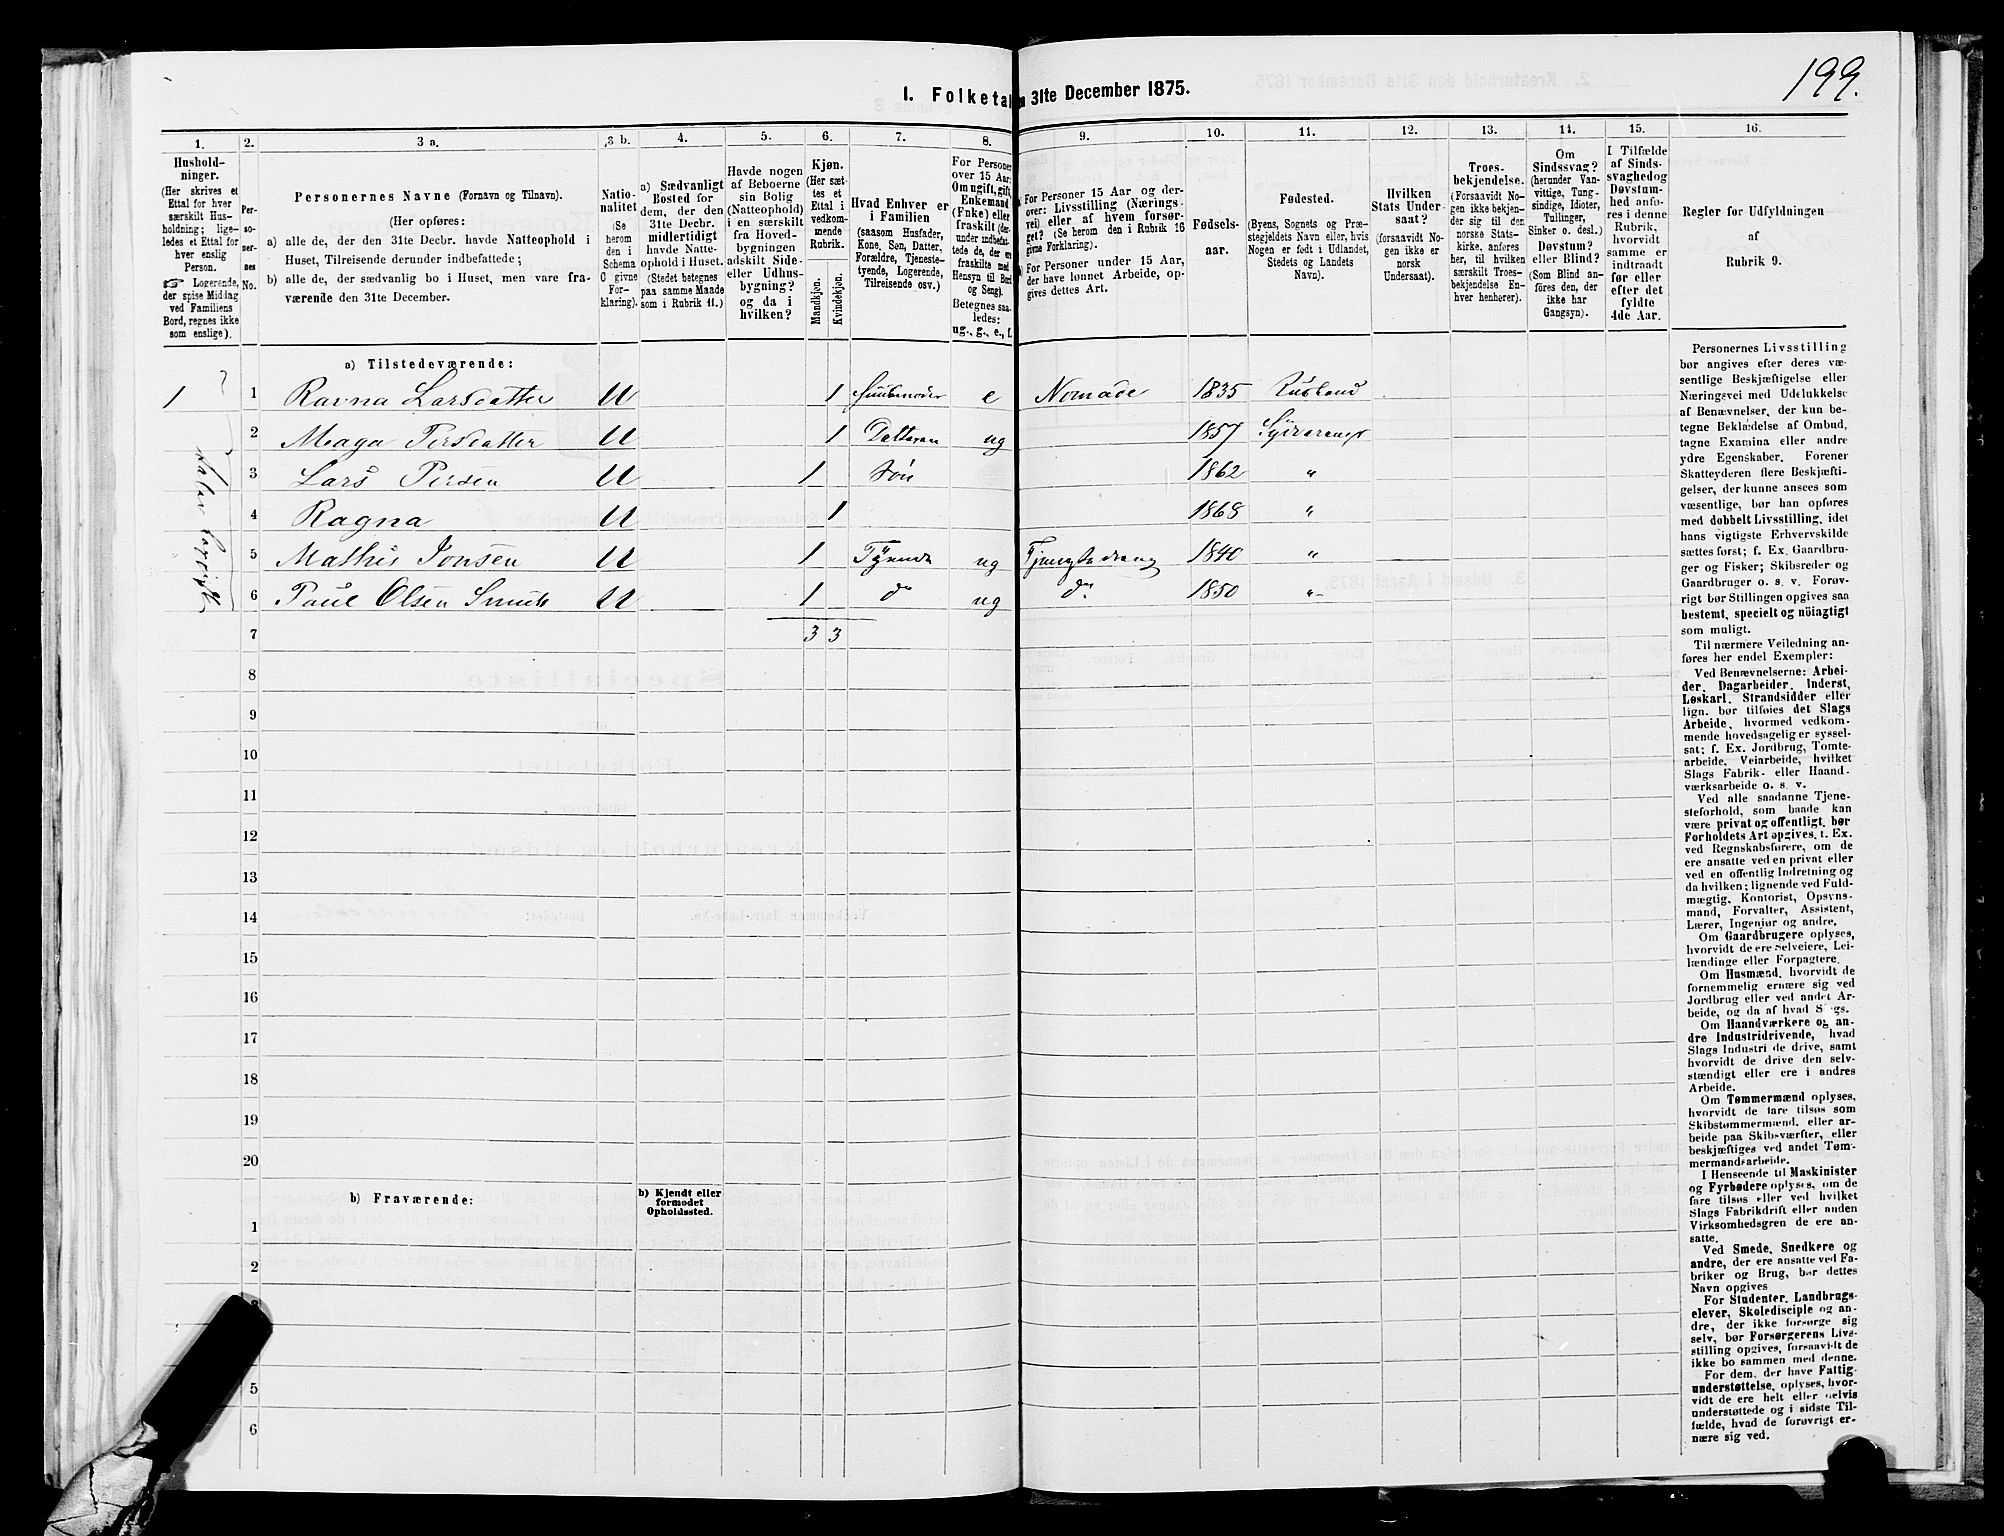 199.
1. Folketal
n 31te December 1875.
1.
2.
3 a.
3 b.
4.
5.
6.
7.
8.
9.
10.
11.
12.
13.
14.
15.
16.
Hushold-
ninger.
(Her skrives et
Ettal for hver
særskilt Hus-
holdning; lige-
ledes et Ettal for
hver enslig
Person.
☞ Logerende,
der spise Middag
ved Familiens
Bord, regnes ikke
som enslige).
Per-
so-
ner-
nes
No.
Personernes Navne (Fornavn og Tilnavn).
(Her opføres:
a) alle de, der den 31te Decbr. havde Natteophold i
Huset, Tilreisende derunder indbefattede;
b) alle de, der sædvanlig bo i Huset, men vare fra-
værende den 31te December.
Natio-
nalitet
(Se
herom
den i
Schema
C givne
For-
klaring).
a) Sædvanligt
Bosted for
dem, der den
31te Decbr.
havde Natte-
midlertidigt
ophold i Huset.
(Stedet betegnes
paa samme Maade
som i Rubrik 11.)
Havde nogen
af Beboerne
sin Bolig
(Natteophold)
i en særskilt
fra Hoved-
bygningen
adskilt Side-
eller Udhus-
bygning?
og da i
hvilken?
Kjøn.
(Her sæt-
tes et
Ettal i
vedkom-
mende
Rubrik.
Mandkjøn.
Kvindekjøn.
Hvad Enhver er
i Familien
(saasom Husfader,
Kone, Søn, Datter,
Forældre, Tjeneste-
tyende, Logerende,
Tilreisende osv.)
For Personer
over 15 Aar:
Om ugift, gift,
Enkemand
(Enke) eller
fraskilt (der-
under indbefat-
tede de, der ere
fraskilte med
Hensyn til Bord
og Seng).
Betegnes saa-
ledes:
ug., g., e., f.
For Personer 15 Aar og der-
over: Livsstilling (Nærings-
vei) eller af hvem forsør-
get? (Se herom den i Rubrik 16
givne Forklaring).
For Personer under 15 Aar,
der have lønnet Arbeide, op-
gives dettes Art.
Fødsels-
aar.
Fødested.
(Byens, Sognets og Præ-
stegjeldets Navn eller, hvis
Nogen er født i Udlandet,
Stedets og Landets
Navn).
Hvilken
Stats Under-
saat?
(forsaavidt No-
gen ikke er
norsk
Undersaat).
Troes-
bekjendelse.
(Forsaavidt No-
gen ikke bekjen-
der sig til den
norske Stats-
kirke, anføres
her, til hvilken
særskilt Troes-
bekjendelse En-
hver henhører).
Om
Sindssvag?
(herunder Van-
vittige, Tung-
sindige, Idioter,
Tullinger,
Sinker o. desl.)
Døvstum?
eller Blind?
(Som Blind an-
føres den, der
ikke har
Gangsyn).
I Tilfælde
af Sinds-
svaghed og
Døvstum-
hed anfø-
res i denne
Rubrik,
hvorvidt
samme er
indtraadt
før eller
efter det
fyldte
4de Aar.
Regler for Udfyldningen
af
Rubrik 9.
a) Tilstedeværende:
1 1 Ravna Larsdatter U 1 Huusmoder e Nomade 1835 Rusland
2 Maga Persdatter U 1 Datteren ug 1857 Sydvaranger
3 Lars Persen U 1 Søn 1862 "
4 Ragna U 1 1868 "
5 Mathis Jonsen U 1 Tyende ug Tjenestedreng 1840 "
6 Paul Olsen Smuk U 1 do ug do 1850 "
7 3 3
8
9
10
11
12
13
14
15
16
17
18
19
20
b) Fraværende:
b) Kjendt eller
formodet
Opholdssted.
1
2
5
6
Personernes Livsstilling
bør angives efter deres væ-
sentlige Beskjæftigelse eller
Næringsvei med Udelukkelse
af Benævnelser, der kun be-
tegne Beklædelse af Ombud,
tagne Examina eller andre
ydre Egenskaber. Forener
Skatteyderen flere Beskjæfti-
gelser, der kunne ansees som
væsentlige, bør han opføres
med dobbelt Livsstilling, idet
hans vigtigste Erhvervskilde
sættes først; f. Ex. Gaardbru-
ger og Fisker; Skibsreder og
Gaardbruger o. s. v. Forøv-
rigt bør Stillingen opgives saa
bestemt, specielt og nöiagtigt
som muligt.
Til nærmere Veiledning an-
føres her endel Exempler:
Ved Benævnelserne: Arbei-
der, Dagarbeider, Inderst,
Løskarl, Strandsidder eller
lign. bør tilføies det Slags
Arbeide, hvormed vedkom-
mende hovedsagelig er syssel-
sat; f. Ex. Jordbrug, Tomte-
arbeide, Veiarbeide, hvilket
Slags Fabrik- eller Haand-
værksarbeide o. s. v.
Ved alle saadanne Tjene-
steforhold, som baade kan
være privat og offentligt, bør
Forholdets Art opgives, t. Ex.
ved Regnskabsførere, om de
ere ansatte ved en privat eller
ved en offentlig Indretning og
da hvilken; lignende ved Fuld-
mægtig, Kontorist, Opsyns-
mand, Forvalter, Assistent,
Lærer, Ingeniør og andre.
Om Gaardbrugere oplyses,
hvorvidt de ere Selveiere, Lei-
lændinge eller Forpagtere.
Om Husmænd, hvorvidt de
fornemmelig ernære sig ved
Jordbrug eller ved andet Ar-
beide, og da af hvad Slags.
Om Haandværkere og an-
dre Industridrivende, hvad
Slags Industri de drive, samt
hvorvidt de drive den selv-
stændigt eller ere i andres
Arbeide.
Om Tømmermænd oplyses,
hvorvidt de fare tilsøs som
Skibstømmermænd, eller ar-
beide paa Skibsværfter, eller
beskjæftiges ved andet Tøm-
mermandsarbeide.
I Henseende til Maskinister
og Fyrbødere oplyses, om de
fare tilsøs eller ved hvilket
Slags Fabrikdrift eller anden
Virksomhedsgren de ere an-
satte.
Ved Smede, Snedkere og
andre, der ere ansatte ved Fa-
briker og Brug, bør dettes
Navn opgives
For Studenter, Landbrugs-
elever, Skoledisciple og an-
dre, der ikke forsørge sig
selv, bør Forsørgerens Livs-
stilling opgives, forsaavidt de
ikke bo sammen med denne.
For dem, der have Fattig-
understøttelse, oplyses, hvor-
vidt de ere helt eller delvis
understøttede og i sidste Til-
fælde, hvad de forøvrigt er-
nære sig ved.